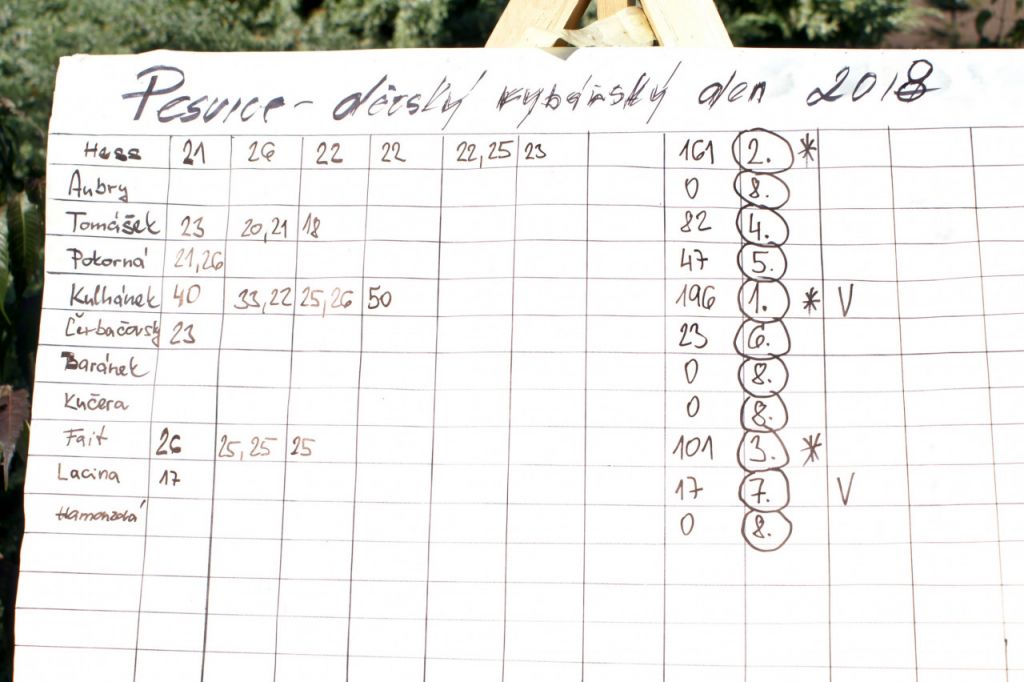 Pesvice - dětský rybářský den 2018
Hess 21 26 22 22 22,25 23 161 2. *
Aubry 0 8.
Tomášek 23 20,21 18 82 4.
Pokorná 21,26 47 5.
Kulhánek 40 33,22 25,26 50 196 1. * V
Čerbačovsky 23 23 6.
Baránek 0 8.
Kučera 0 8.
Fait 26 25,25 25 101 3. *
Lacina 17 17 7. V
0 8.